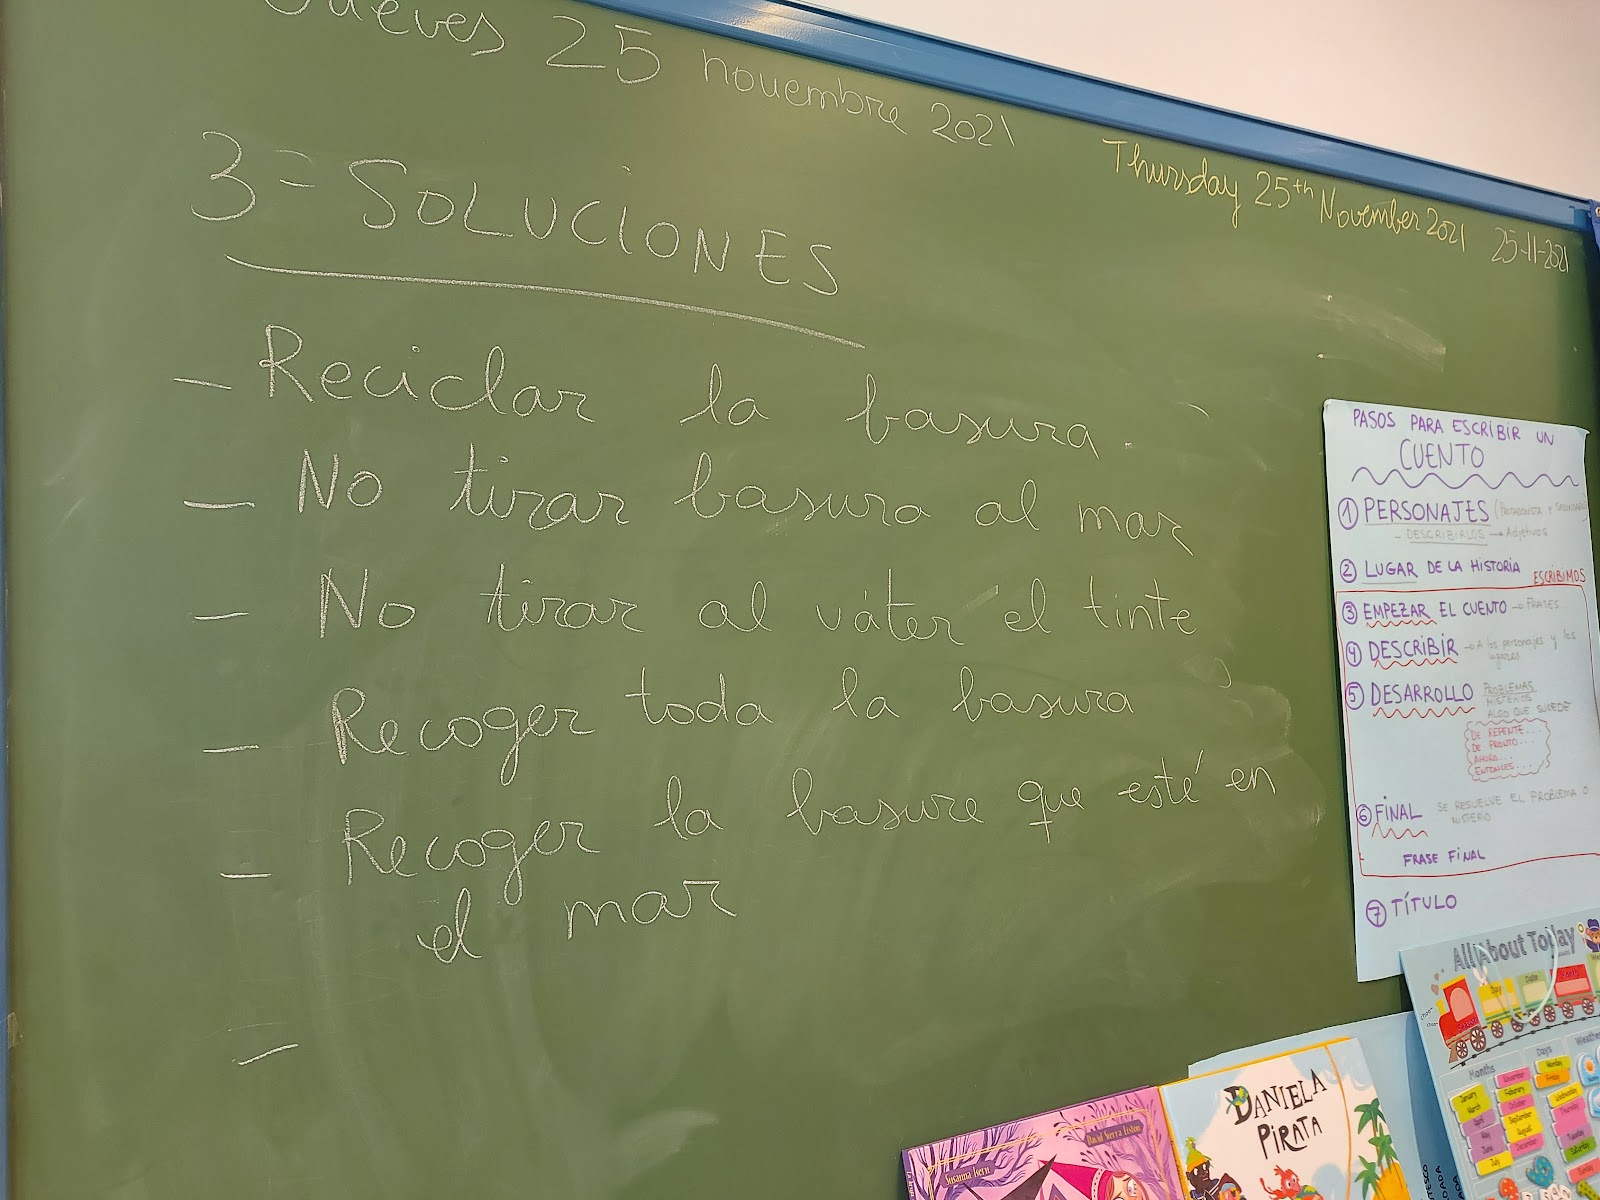 Jueves 25 nouembre 2021
Thursday 25th November 2021 25-11-2021
3- SOLUCIONES
- Reciclar la basura.
- No tirar basura al mar
- No tirar al váter el tinte
- Recoger toda la basura
- Recoger la basure que esté en
el mar
-
PASOS PARA ESCRIBIR UN
CUENTO
① PERSONAJES (PROTAGONISTA Y
- DESCRIBIRLOS → Adjetivos
② LUGAR DE LA HISTORIA
ESCRIBIMOS
③ EMPEZAR EL CUENTO → FRASES
④ DESCRIBIR → A los personajes y los
lugares
⑤ DESARROLLO PROBLEMAS
MISTERIOS
ALGO QUE SUCEDE
DE REPENTE...
DE PRONTO...
AHORA...
ENTONCES...
⑥ FINAL SE RESUELVE EL PROBLEMA O
MISTERIO
FRASE FINAL
⑦ TÍTULO
All About Today
choo-
choo-
Day
Date
Months
Days
Weather
January
March
April
May
June
July
November
February
October
September
August
December
Monday
Friday
Wednesday
Thursday
Tuesday
Saturday
Sunday
DANIELA
PIRATA
Susanna Isern
David Sierra Listón